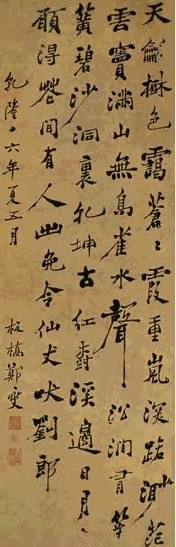 天龢樹色靄蒼〻霞重嵐深路渺茫
雲竇滿山無鳥雀水聲沿澗有笙
簧碧沙洞裏乾坤古紅樹溪邊日月
願得花間有人出免令仙犬吠劉郎
乾隆六年夏五月
板橋鄭燮